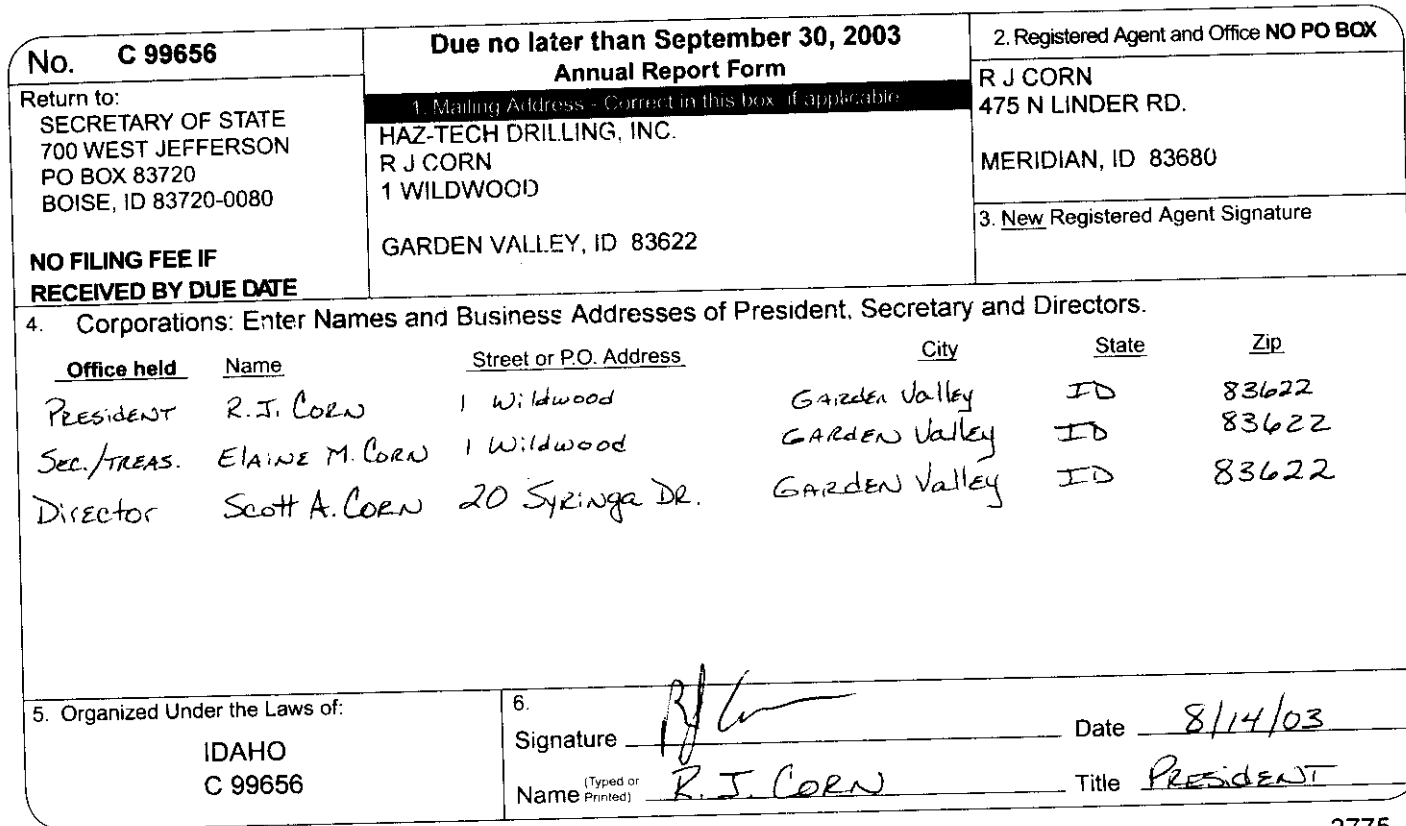 No. C 99656
Return to:
SECRETARY OF STATE
700 WEST JEFFERSON
PO BOX 83720
BOISE, ID 83720-0080
NO FILING FEE IF
RECEIVED BY DUE DATE
Due no later than September 30, 2003
Annual Report Form
1. Mailing Address - Correct in this box if applicable
HAZ-TECH DRILLING, INC.
R J CORN
1 WILDWOOD
GARDEN VALLEY, ID 83622
2. Registered Agent and Office NO PO BOX
R J CORN
475 N LINDER RD.
MERIDIAN, ID 83680
3. New Registered Agent Signature
4. Corporations: Enter Names and Business Addresses of President, Secretary and Directors.
Office held Name Street or P.O. Address City State Zip
PRESIDENT R.J. CORN 1 Wildwood GARDEN Valley ID 83622
SEC./TREAS. ELAINE M. CORN 1 Wildwood GARDEN Valley ID 83622
Director Scott A. CORN 20 SYRINGA DR. GARDEN Valley ID 83622
5. Organized Under the Laws of:
IDAHO
C 99656
6.
Signature RJ Corn Date 8/14/03
Name (Typed or Printed) R. J. CORN Title PRESIDENT
2775